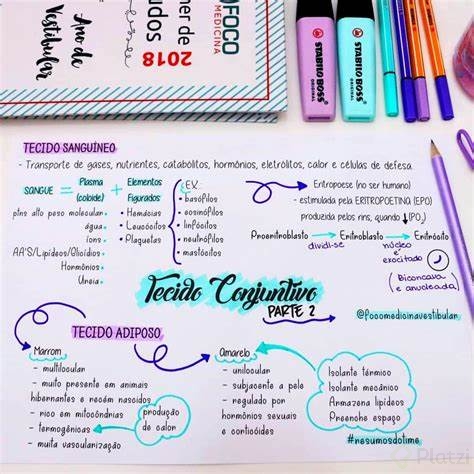 FOCO
MEDICINA
Ano de
Vestibular
2018
STABILO BOSS
ORIGINAL
STABILO BOSS
ORIGINAL
TECIDO SANGUÍNEO
- Transporte de gases, nutrientes, catabólitos, hormônios, eletrólitos, calor e células de defesa
SANGUE = Plasma (coloide) + Elementos Figurados
ptns alto peso molecular
água
íons
AA'S/Lipídeos/Glicídios
Hormônios
Ureia
• Hemácias
• Leucócitos
• Plaquetas
EX.
• basófilos
• eosinófilos
• linfócitos
• neutrófilos
• mastócitos
Eritropoese (no ser humano)
- estimulada pela ERITROPOETINA (EPO)
produzida pelos rins, quando ↓(PO₂)
Proeritroblasto → Eritroblasto → Eritrócito
dividi-se
núcleo
é
exocitado
(Bicôncava
e anucleada)
Tecido Conjuntivo
PARTE 2
@focomedicinavestibular
TECIDO ADIPOSO
Marrom
- multilocular
- muito presente em animais
hibernantes e recém nascidos
- rico em mitocôndrias
- termogênicas
- muita vascularização
produção
de calor
Amarelo
- unilocular
- subjacente a pele
- regulado por
hormônios sexuais
e corticóides
Isolante térmico
Isolante mecânico
Armazena lipídeos
Preenche espaço
#resumosdotime
Platzi